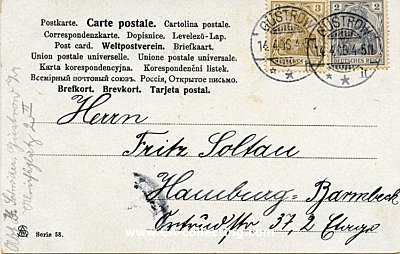 Postkarte. Carte postale. Cartolina postale.
Correspondenzkarte. Dopisnice. Levelező-Lap.
Post card. Weltpostverein. Briefkaart.
Union postale universelle. Unione postale universale.
Karta korespondencyjna. Korespondenčni listek.
Всемірный почтовый союзъ. Россія, Открытое письмо.
Brefkort. Brevkort. Tarjeta postal.
GÜSTROW
14.4.06.4-5N
3
DEUTSCHES REICH
GÜSTROW
4.06.4-5N
2
DEUTSCHES REICH
Herrn
Fritz Soltau
Hamburg-Barmbeck
37, 2 Etage
Serie 58.
Abs.
Güstrow